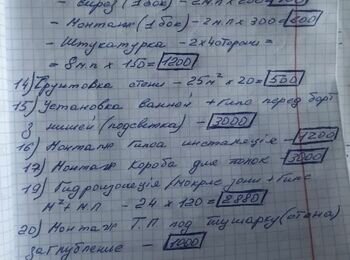 - Вырез (1 бок) - 2 м.п х 200
- Монтаж (1 бок) - 2 м.п х 300 = 600
- Штукатурка - 2х4 стороны =
= 8 м.п х 150 = 1200
14) Грунтовка стени - 25 м² х 20 = 500
15) Установка ванной + гипс перед борт
з нишей (подсветка) - 3000
16) Монтаж гипса инсталяція - 1200
17) Монтаж короба для полок - 3000
19) Гидроизоляція / мокрые зони + гипс
м² + м.п - 24 х 120 = 2880
20) Монтаж Т.П под (стена)
заглубление - 1000